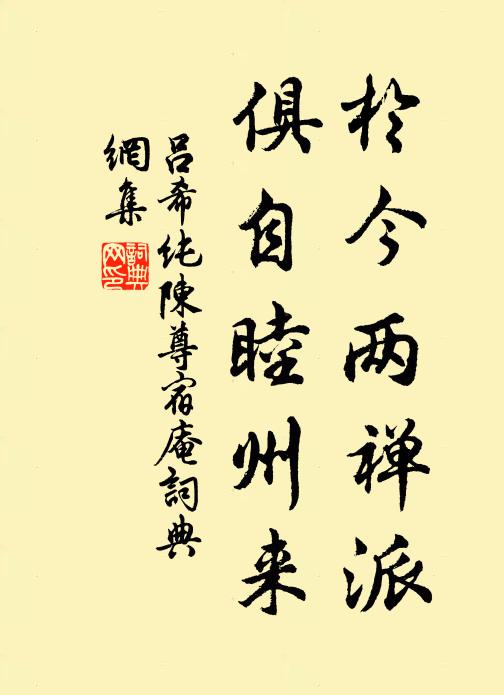 於今两禅派
俱自睦州来
吕希纯陳尊宿庵詞典
網集
詞典
网印